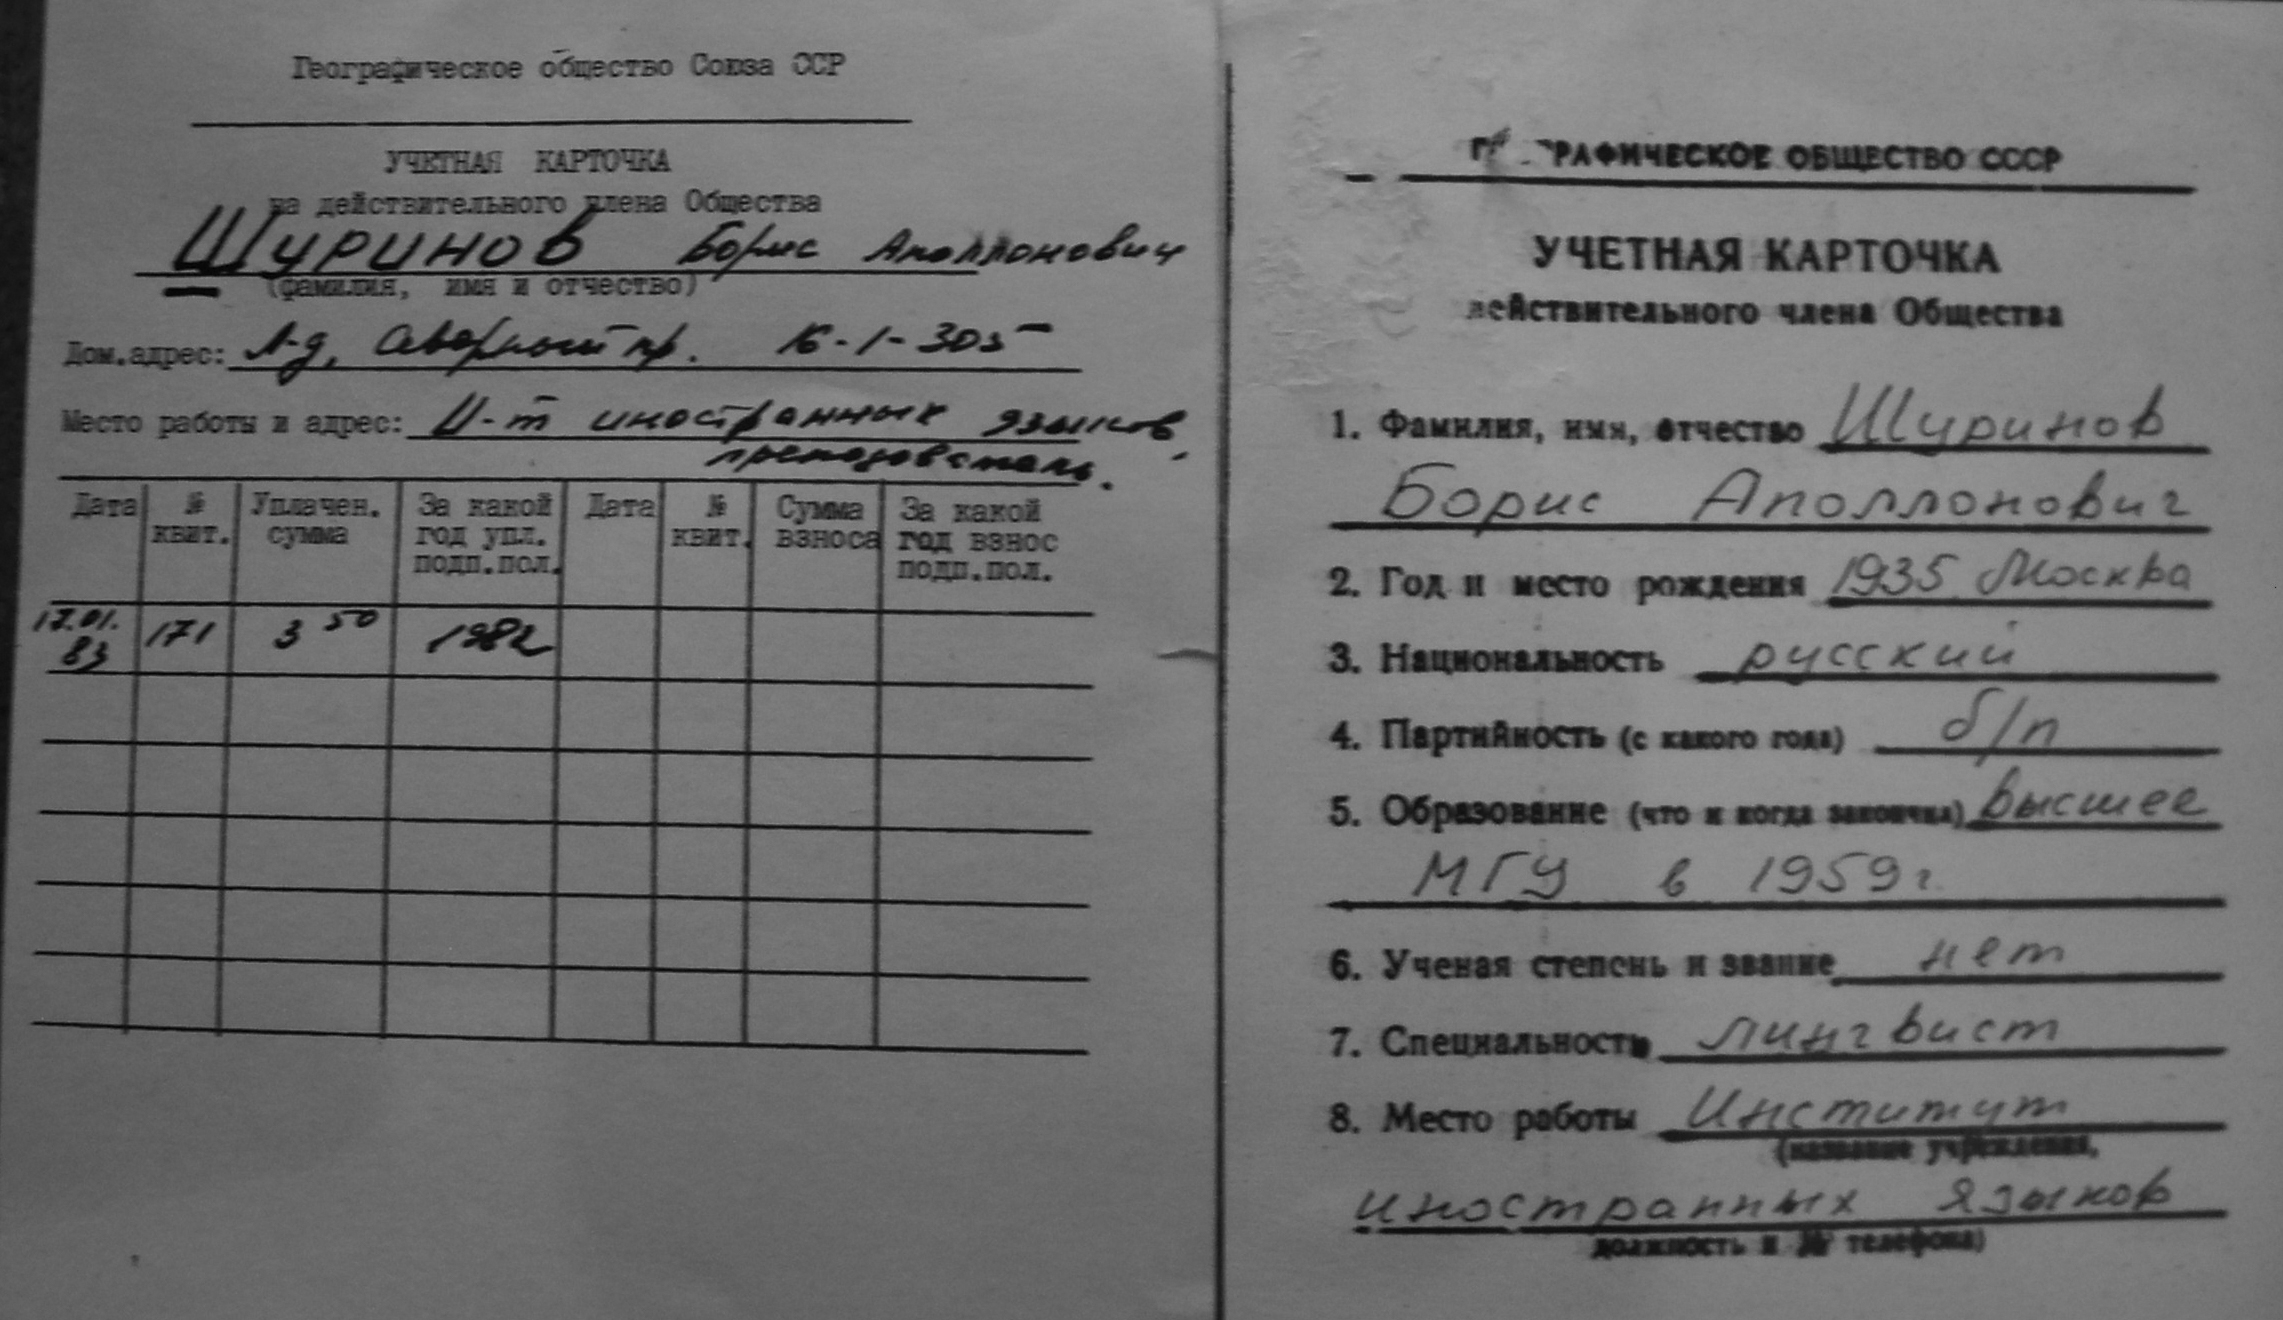 Географическое общество Союза ССР
УЧЕТНАЯ КАРТОЧКА
на действительного члена Общества
Щуринов Борис Аполлонович
(фамилия, имя и отчество)
Дом.адрес: Л-д, Северный пр. 16-1-305
Место работы и адрес: И-т иностранных языков,
преподаватель.
Дата № квит. Уплачен. сумма За какой год упл. подп.пол. Дата № квит. Сумма взноса За какой год взнос подп.пол.
17.01.83 171 3 50 1982
ГРАФИЧЕСКОЕ ОБЩЕСТВО СССР
УЧЕТНАЯ КАРТОЧКА
действительного члена Общества
1. Фамилия, имя, отчество Щуринов
Борис Аполлонович
2. Год и место рождения 1935 Москва
3. Национальность русский
4. Партийность (с какого года) б/п
5. Образование (что и когда закончил) высшее
МГУ в 1959г
6. Ученая степень и звание нет
7. Специальность лингвист
8. Место работы Институт
(название учреждения,
иностранных языков
должность и № телефона)